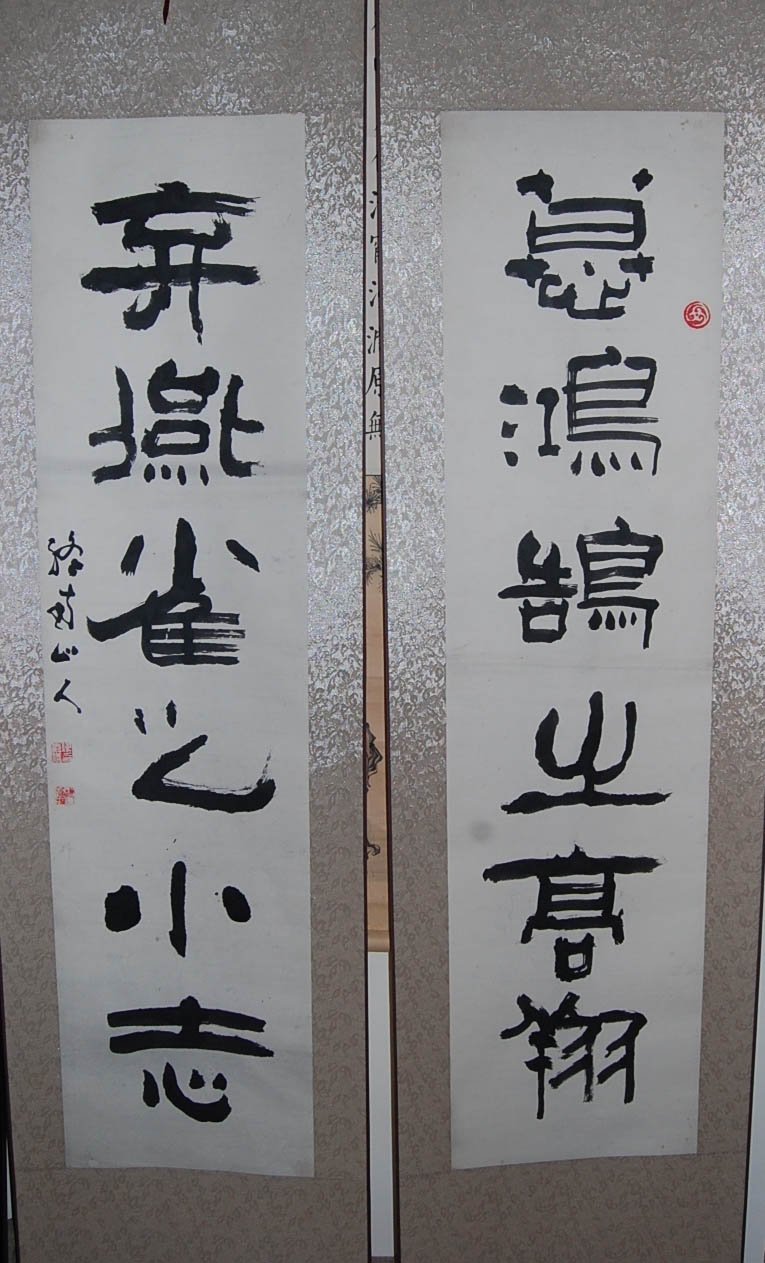 慕鴻鵠之高翔
弃燕雀之小志
終南山人